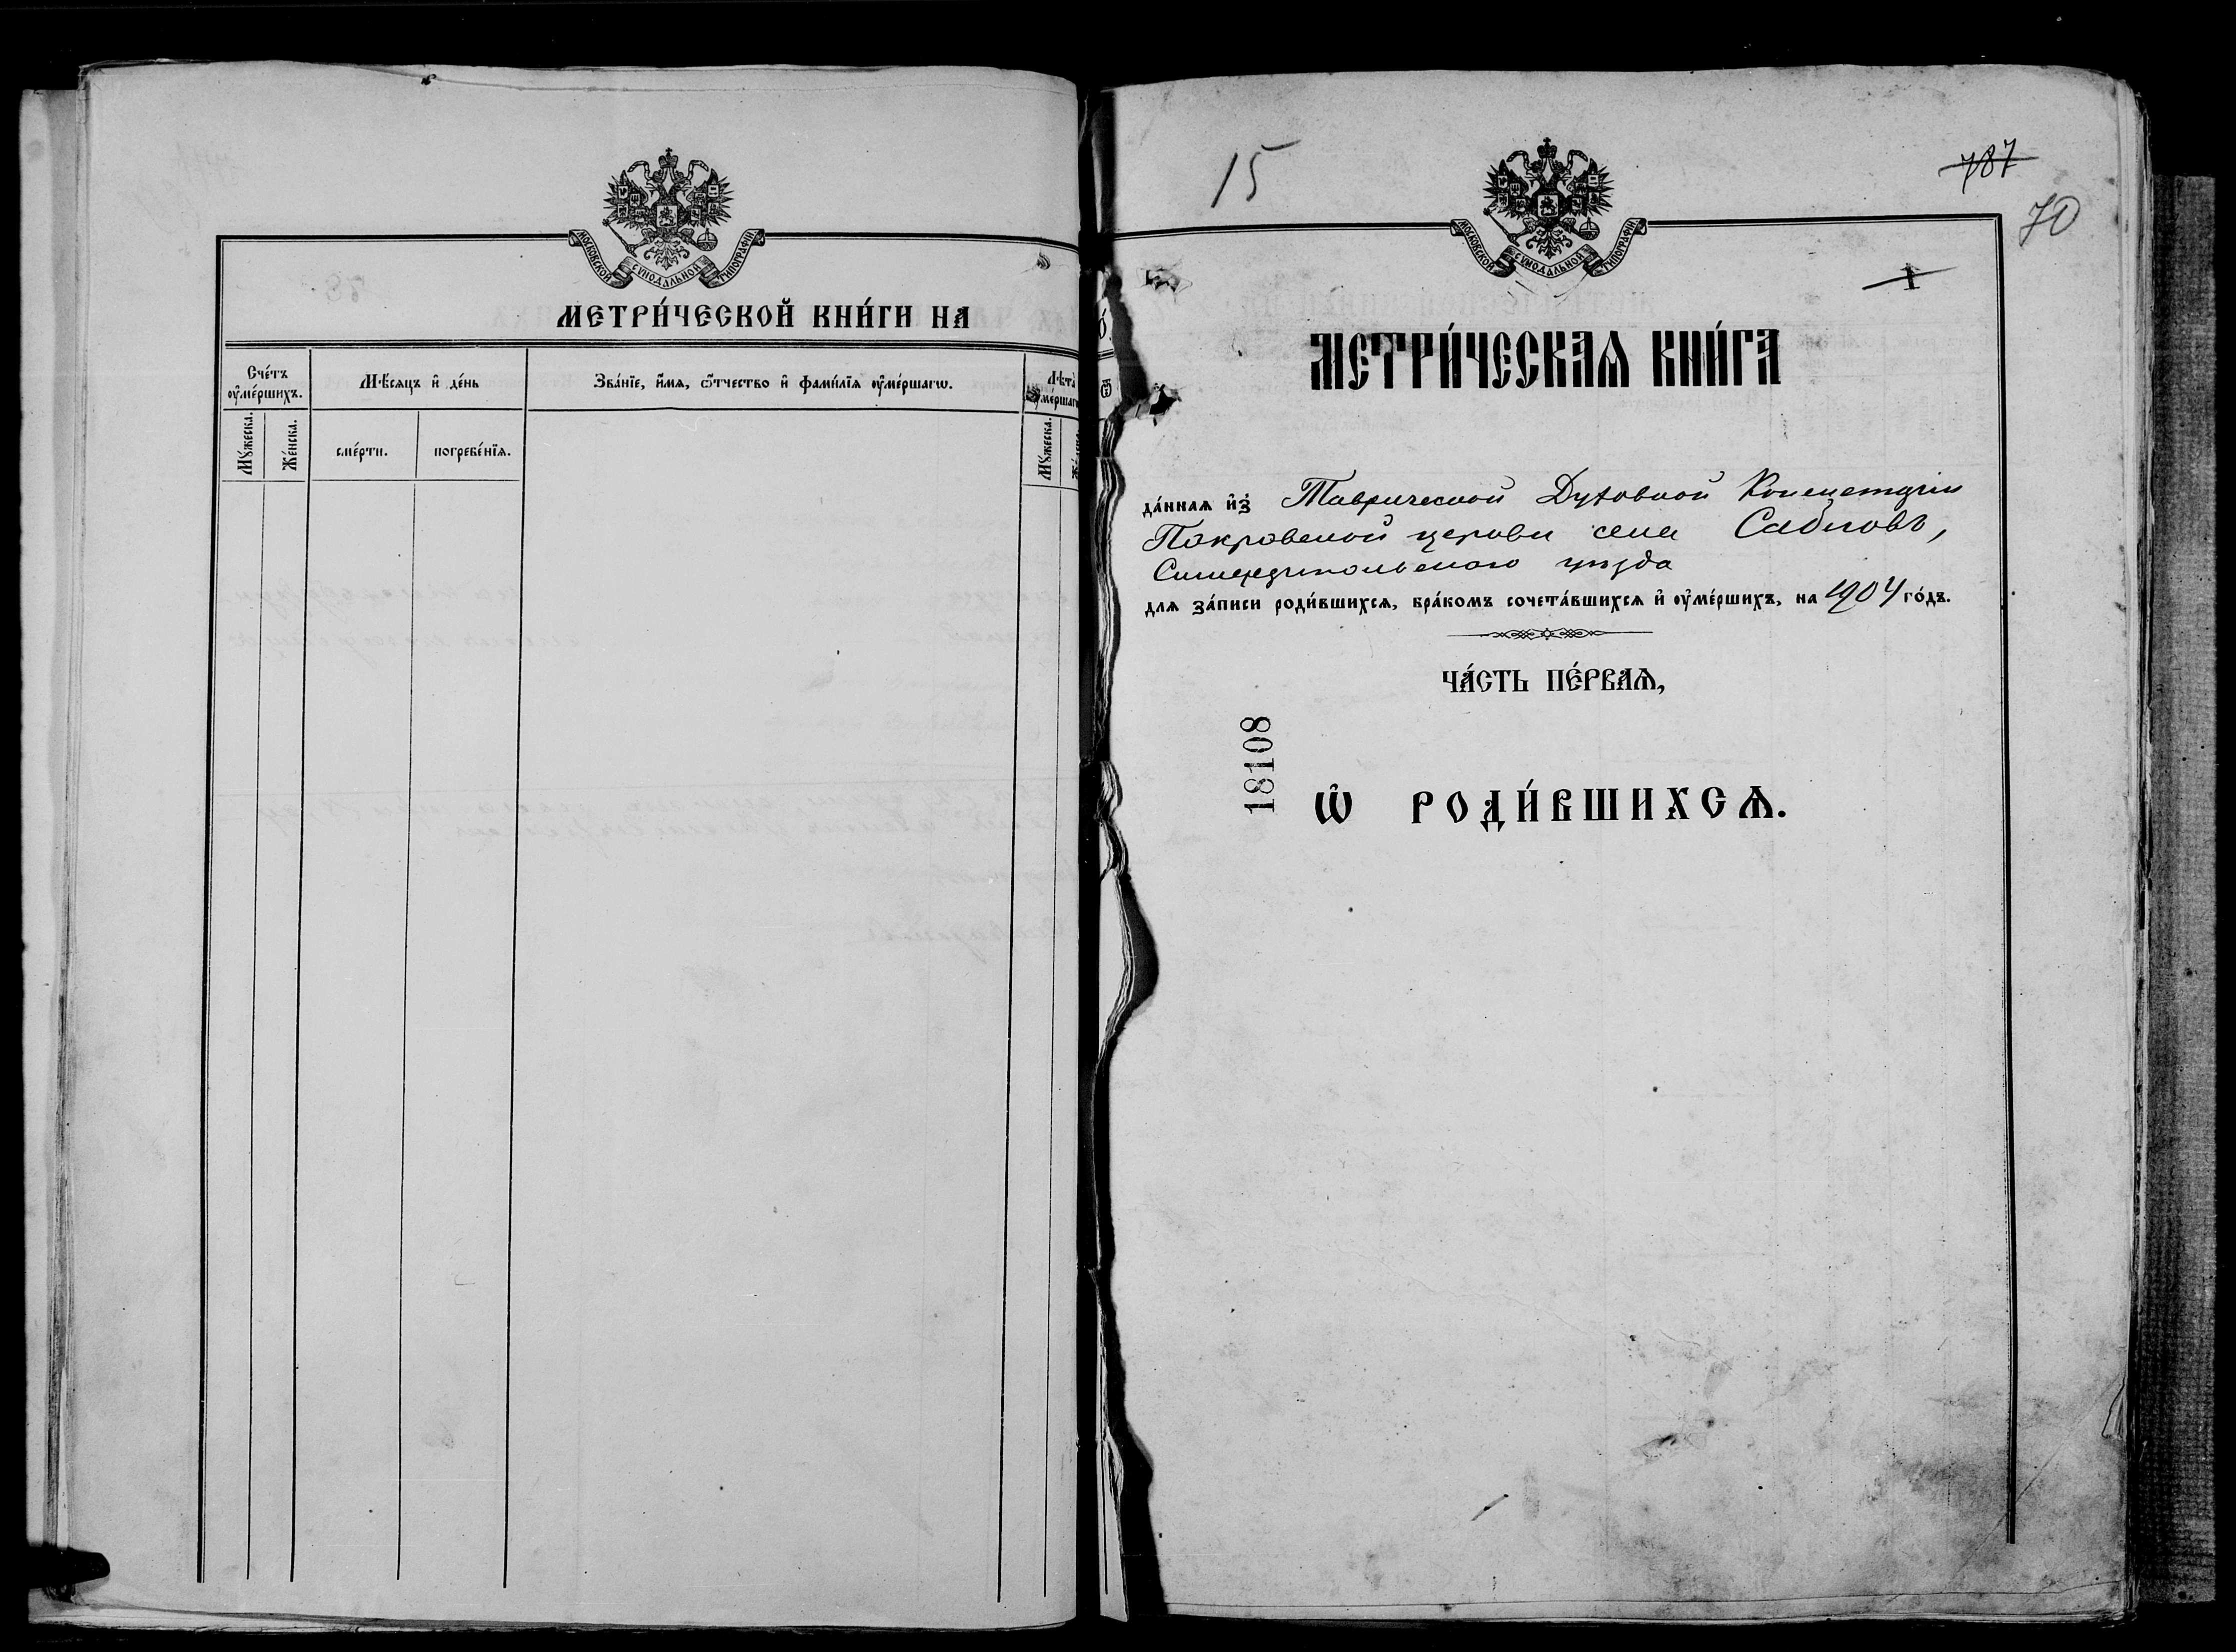 МОСКОВСКОЙ СѴНОДАЛЬНОЙ ТИПОГРАФІИ
МЕТРИ́ЧЕСКОЙ КНИ́ГИ НА
Сче́тъ ᲂу҆ме́ршихъ.
Мѣ́сяцъ и҆ де́нь
Зва́нїе, и҆́мя, ѻ҆́тчество и҆ фами́лїя ᲂу҆ме́ршагѡ.
Лѣ́та ᲂу҆ме́ршагѡ
Мꙋ́жеска.
Же́нска.
сме́рти.
погребе́нїя.
Мꙋ́жеска.
15
787
70
МОСКОВСКОЙ СѴНОДАЛЬНОЙ ТИПОГРАФІИ
1
МЕТРИ́ЧЕСКАѦ КНИ́ГА
да́ннаѧ и҆з̾ Таврической Духовной Консисторіи
Покровской церкви села Сабловъ,
Симферопольскаго уѣзда
для за́писи роди́вшихсѧ, бра́комъ сочета́вшихсѧ и҆ ᲂу҆ме́ршихъ, на 1904 го́дъ.
ЧА́СТЬ ПЕ́РВАѦ,
18108
Ѡ҆ РОДИ́ВШИХСѦ.